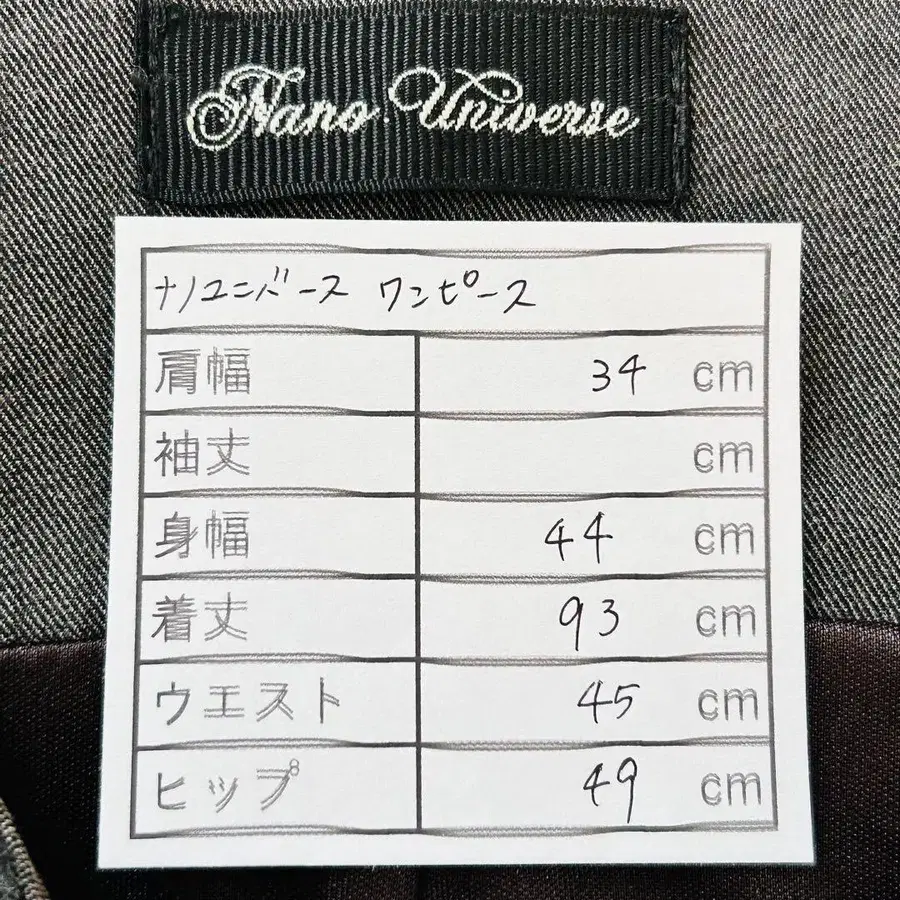 Nano Universe
ナノユニバース ワンピース
肩幅 34 cm
袖丈 cm
身幅 44 cm
着丈 93 cm
ウエスト 45 cm
ヒップ 49 cm